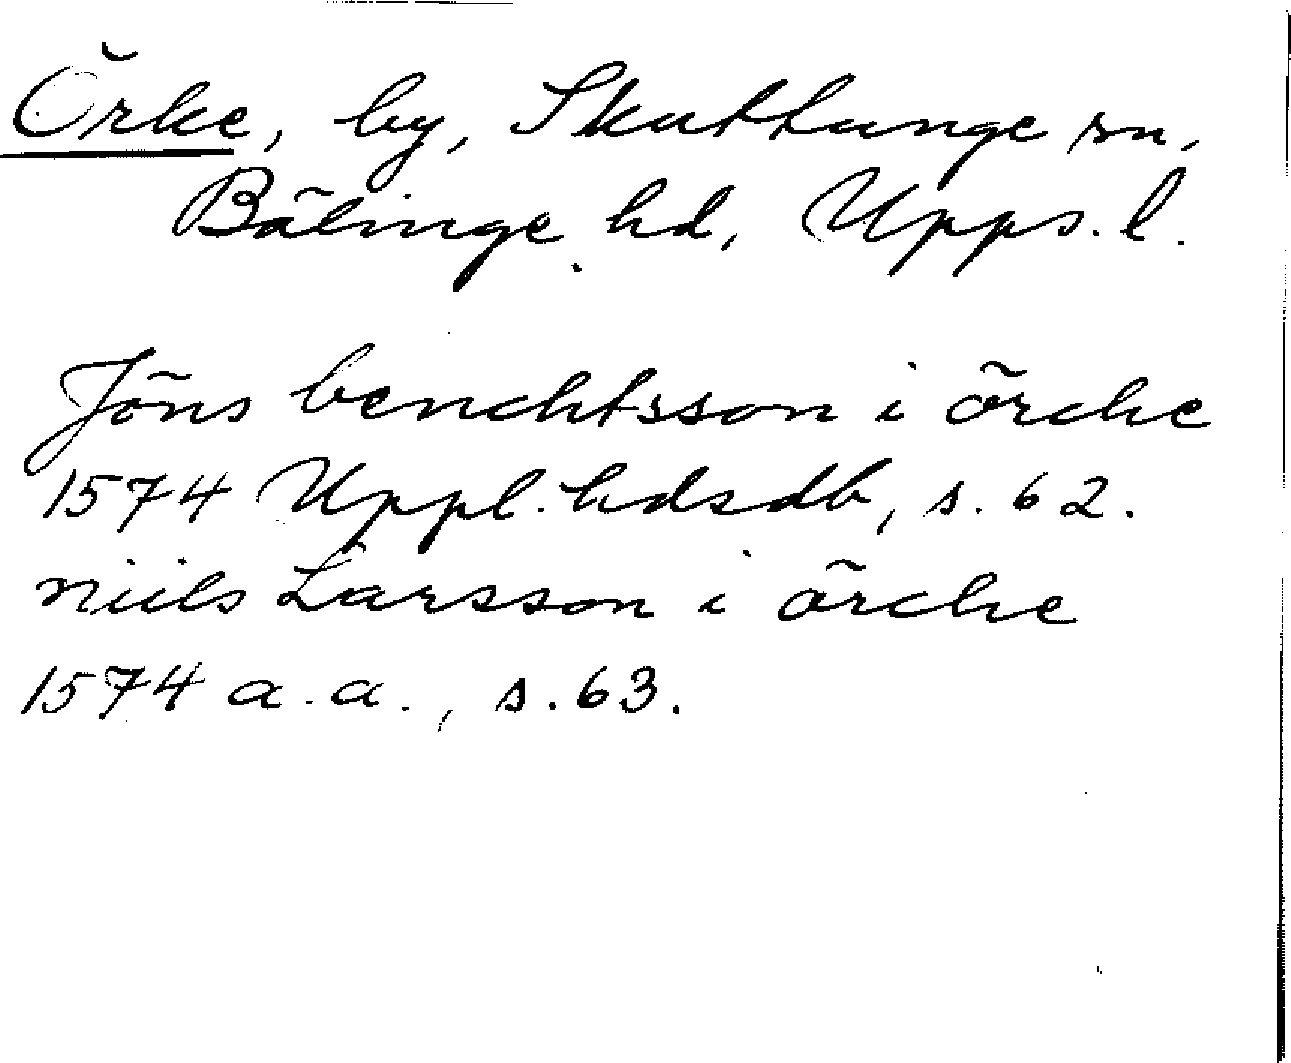 Örke, by, Skuttunge sn,
Bälinge hd, Upps. l.
Jöns benchtsson i örche
1574 Uppl. hdsdb, s. 62.
niils Larsson i örche
1574 a. a., s. 63.